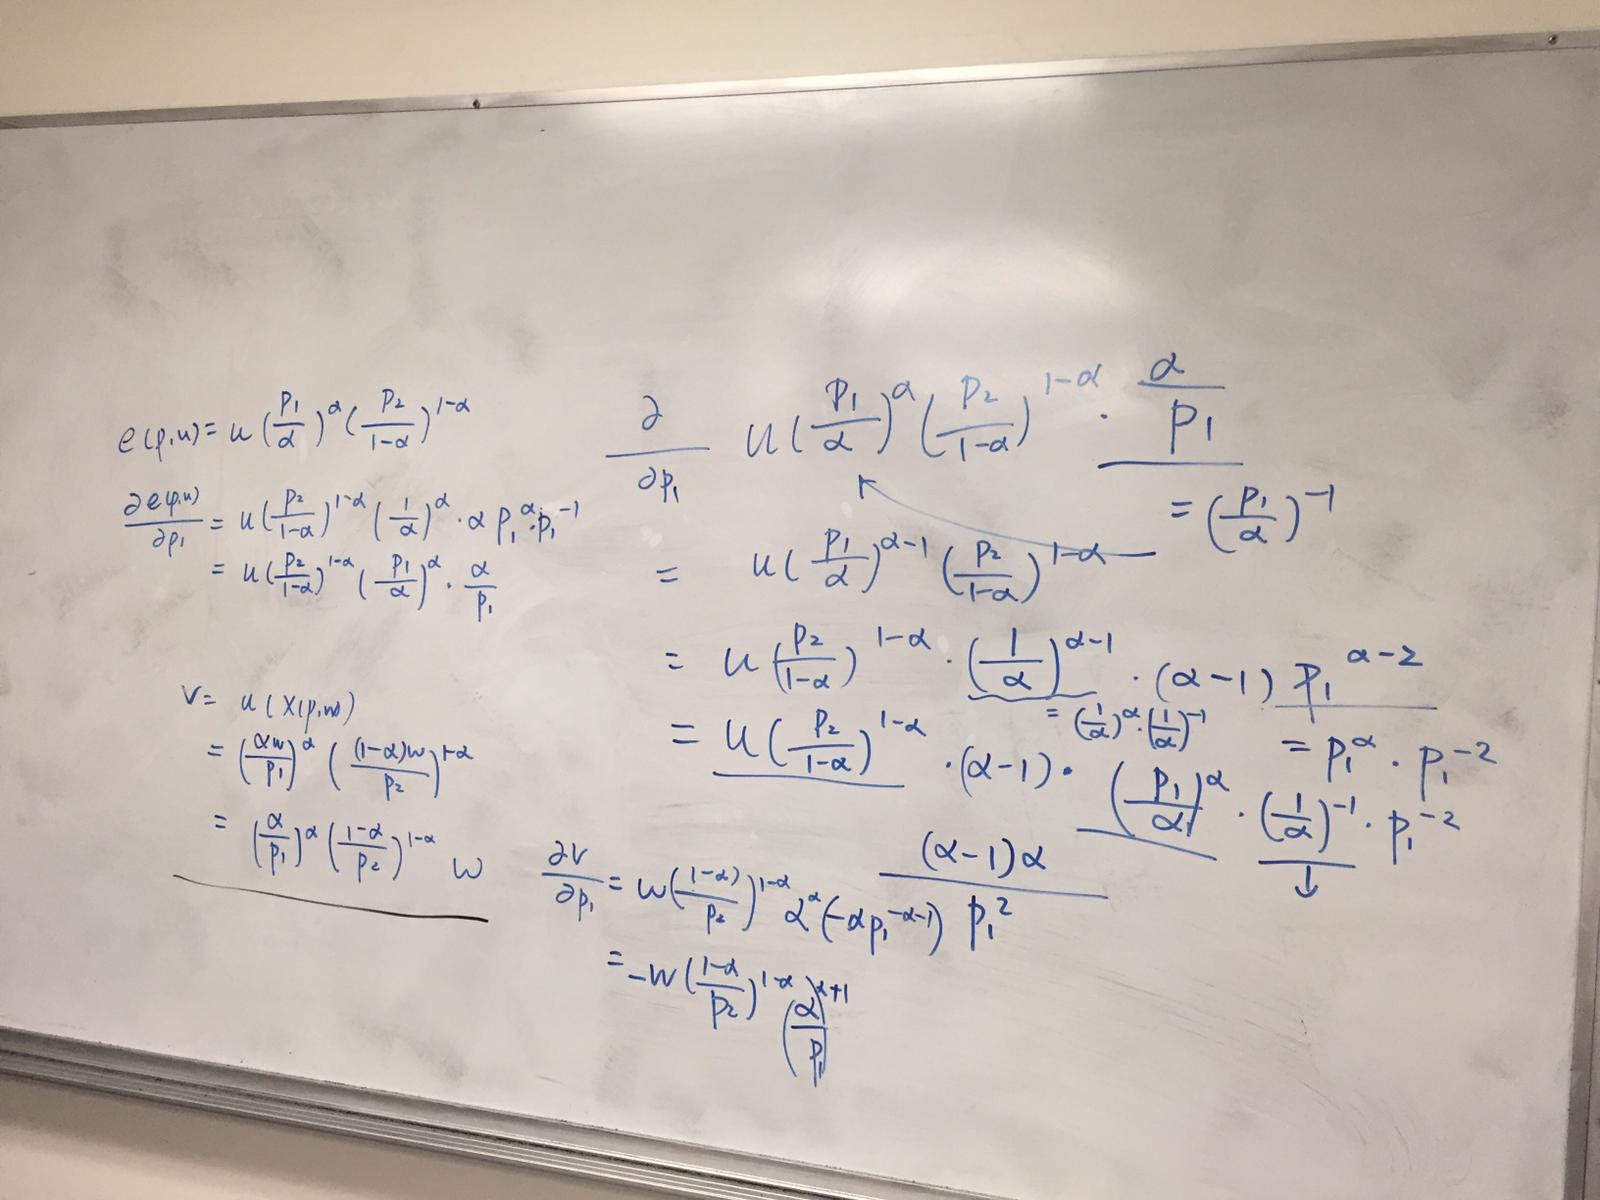 e(p,u) = u (p₁/α)^α (p₂/(1-α))^(1-α)
∂e(p,u)/∂p₁ = u (p₂/(1-α))^(1-α) (1/α)^α · α p₁^α · p₁^(-1)
= u (p₂/(1-α))^(1-α) (p₁/α)^α · α/p₁
V = u(x(p,w))
= (αw/p₁)^α ((1-α)w/p₂)^(1-α)
= (α/p₁)^α ((1-α)/p₂)^(1-α) w
∂/∂p₁ u (p₁/α)^α (p₂/(1-α))^(1-α) · α/p₁
= (p₁/α)^(-1)
= u (p₁/α)^(α-1) (p₂/(1-α))^(1-α)
= u (p₂/(1-α))^(1-α) · (1/α)^(α-1) · (α-1) p₁^(α-2)
= (1/α)^α · (1/α)^(-1)
= p₁^α · p₁^(-2)
= u (p₂/(1-α))^(1-α) · (α-1) · (p₁/α)^α · (1/α)^(-1) · p₁^(-2)
↓
(α-1)α/p₁²
∂V/∂p₁ = w ((1-α)/p₂)^(1-α) α^α (-α p₁^(-α-1))
= -w ((1-α)/p₂)^(1-α) (α/p₁)^(α+1)